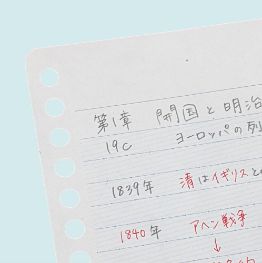 第1章 開国と明治
19c ヨーロッパの列
1839年 清はイギリスと
1840年 アヘン戦争
↓